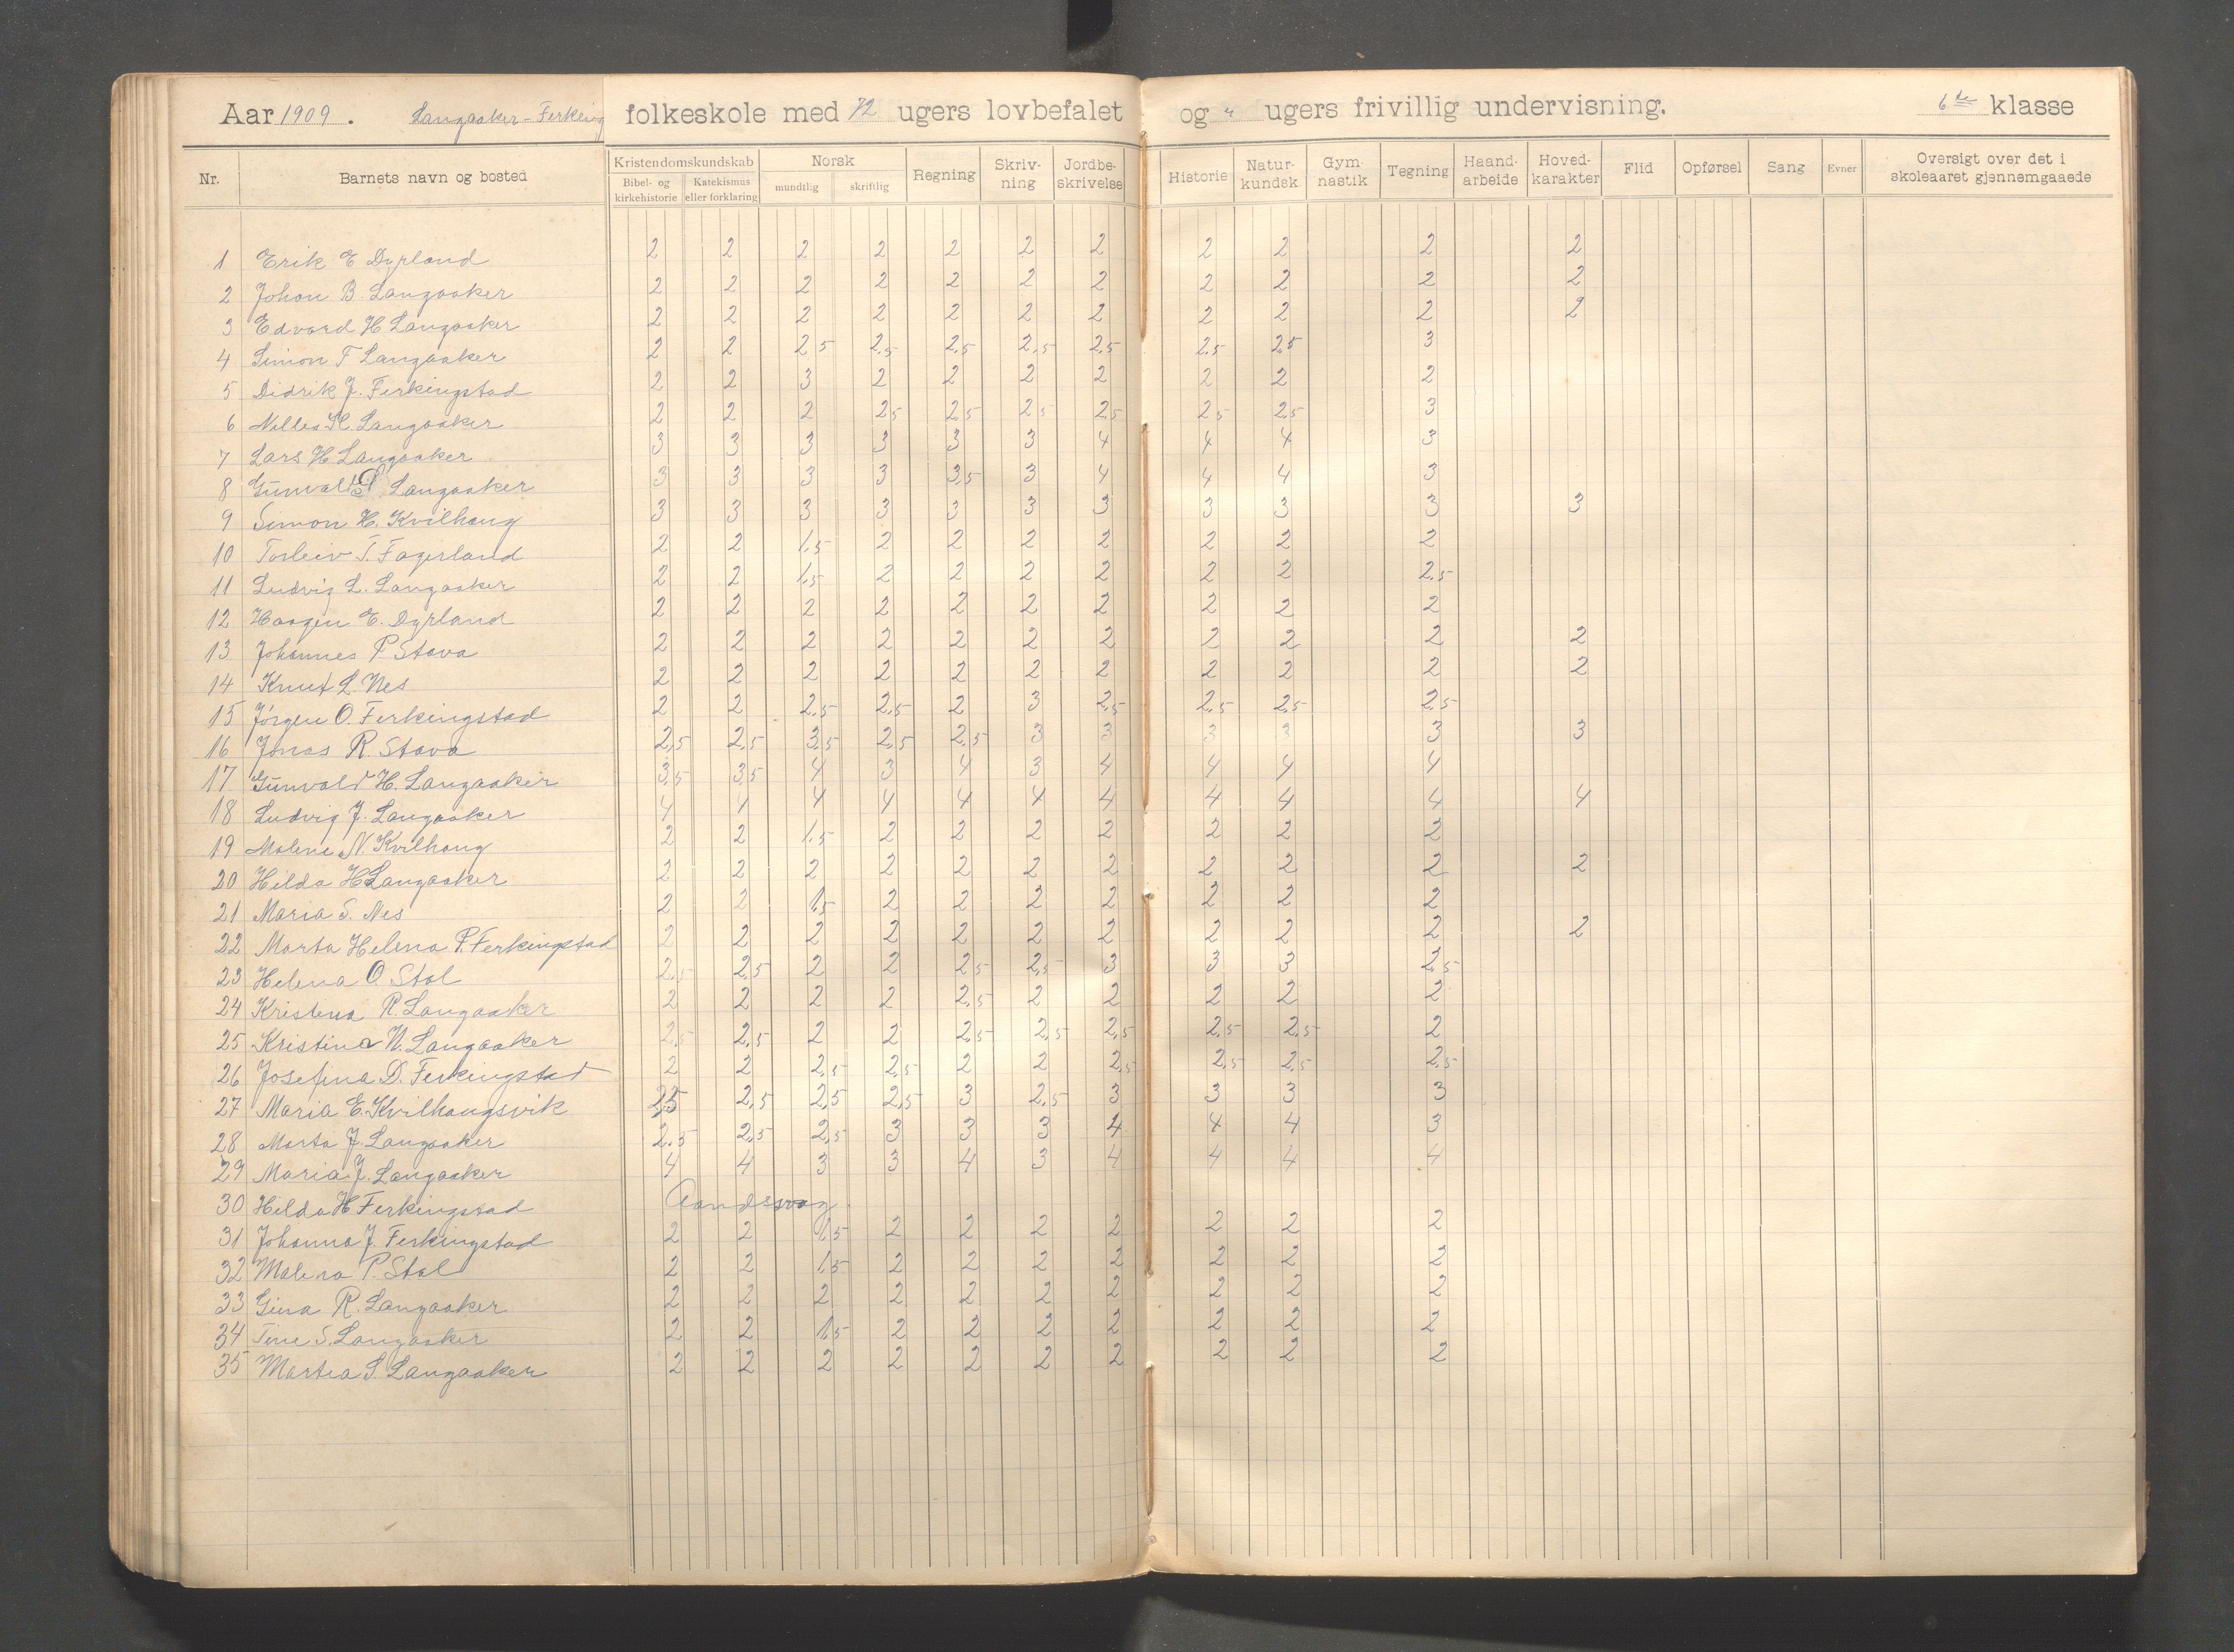 Aar 1909. Langaaker-Ferking folkeskole med 12 ugers lovbefalet og " ugers frivillig undervisning. 6te klasse
Nr. Barnets navn og bosted Kristendomskundskab Norsk Regning Skriv-ning Jordbe-skrivelse Historie Natur-kundsk. Gym-nastik Tegning Haand-arbeide Hoved-karakter Flid Opførsel Sang Evner Oversigt over det i skoleaaret gjennemgaaede
Bibel- og kirkehistorie Katekismus eller forklaring mundtlig skriftlig
1 Erik E Dyrland 2 2 2 2 2 2 2 2 2 2 2
2 Johan B. Langaaker 2 2 2 2 2 2 2 2 2 2 2
3 Edvard H Langaaker 2 2 2 2 2 2 2 2 2 2 2
4 Simon F Langaaker 2 2 2,5 2,5 2,5 2,5 2,5 2,5 2,5 3
5 Didrik J. Ferkingstad 2 2 3 2 2 2 2 2 2 2
6 Nilles K. Langaaker 2 2 2 2,5 2,5 2,5 2,5 2,5 2,5 3
7 Lars H Langaaker 3 3 3 3 3 3 4 4 4 3
8 Gunvald Langaaker 3 3 3 3 3,5 3 4 4 4 3
9 Simon H. Kvilhaug 3 3 3 3 3 3 3 3 3 3 3
10 Torleiv T. Fagerland 2 2 1,5 2 2 2 2 2 2 2
11 Ludvig L. Langaaker 2 2 1,5 2 2 2 2 2 2 2,5
12 Haagen E. Dyrland 2 2 2 2 2 2 2 2 2 2
13 Johannes P. Stava 2 2 2 2 2 2 2 2 2 2 2
14 Knut L. Nes 2 2 2 2 2 2 2 2 2 2 2
15 Jørgen O. Ferkingstad 2 2 2,5 2,5 2 3 2,5 2,5 2,5 2,5
16 Jonas R. Stava 2,5 2,5 3,5 2,5 2,5 3 3 3 3 3 3
17 Gunvald H. Langaaker 3,5 3,5 4 3 4 3 4 4 4 4
18 Ludvig J. Langaaker 4 4 4 4 4 4 4 4 4 4 4
19 Malene N. Kvilhaug 2 2 1,5 2 2 2 2 2 2 2
20 Hilda H Langaaker 2 2 2 2 2 2 2 2 2 2 2
21 Maria S. Nes 2 2 1,5 2 2 2 2 2 2 2
22 Marta Helena P. Ferkingstad 2 2 2 2 2 2 2 2 2 2 2
23 Helena O Stol 2,5 2,5 2 2 2,5 2,5 3 3 3 2,5
24 Kristena R. Langaaker 2 2 2 2 2,5 2 2 2 2 2
25 Kristina N. Langaaker 2,5 2,5 2 2 2,5 2,5 2,5 2,5 2,5 2
26 Josefina D. Ferkingstad 2 2 2,5 2,5 2 2 2,5 2,5 2,5 2,5
27 Maria E. Kvilhaugsvik 2,5 2,5 2,5 2,5 3 2,5 3 3 3 3
28 Marta J. Langaaker 2,5 2,5 2,5 3 3 3 4 4 4 3
29 Maria J. Langaaker 4 4 3 3 4 3 4 4 4 4
30 Hilda H Ferkingstad Aandssvag.
31 Johanna J. Ferkingstad 2 2 1,5 2 2 2 2 2 2 2
32 Malena P. Stol 2 2 1,5 2 2 2 2 2 2 2
33 Gina R. Langaaker 2 2 2 2 2 2 2 2 2 2
34 Tine S. Langaaker 2 2 1,5 2 2 2 2 2 2 2
35 Martea S. Langaaker 2 2 2 2 2 2 2 2 2 2